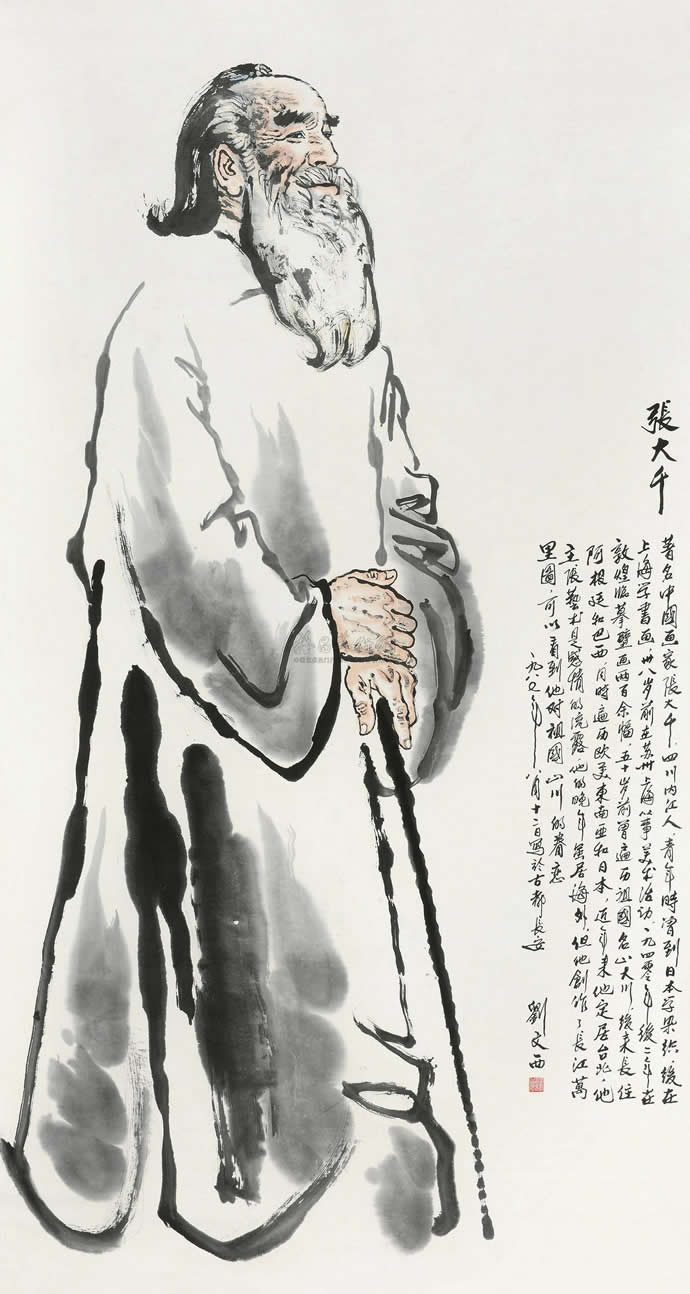 張大千
著名中國画家張大千,四川内江人,青年時曾到日本学染织,後在
上海学書画,卅八岁前在苏州上海从事美术活动,一九四零年後二年在
敦煌临摹壁画两百余幅,五十岁前曾遍历祖國名山大川,後来長住
阿根廷和巴西,同時遍历欧美東南亚和日本,近年来他定居台北,他
主張藝术是感情的流露,他的晚年虽居海外,但他創作了長江萬
里圖,可以看到他对祖國山川的眷恋
一九八〇年八月十二日寫於古都長安 劉文西